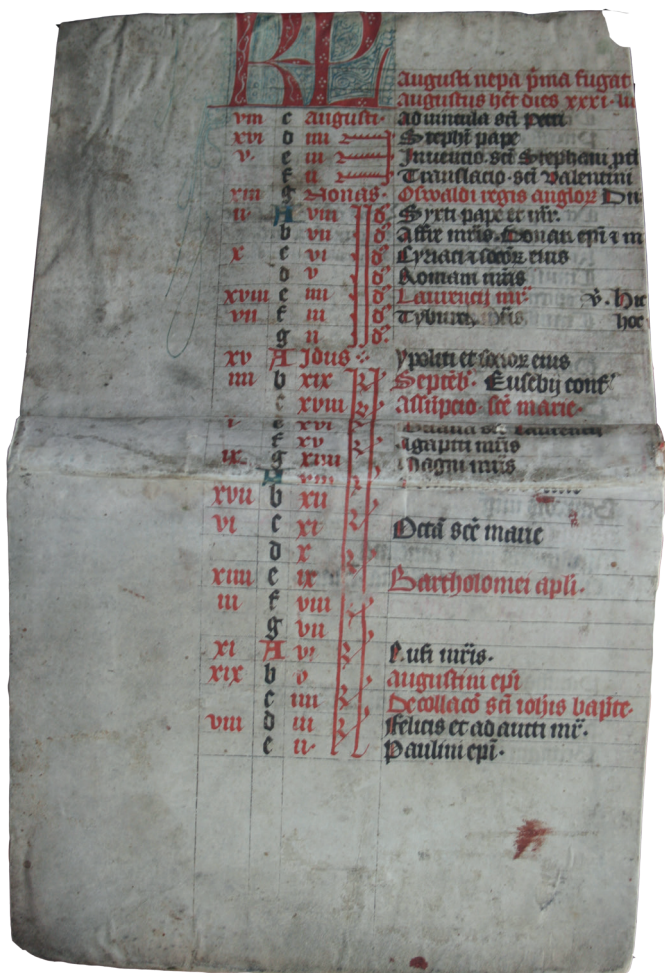 KL
Augusti nepa p̄ma fugat
Augustus hēt dies xxxi. lu
viii c Augusti. Ad vincula scī Petri
xvi d iiii Stephī pape
v. e iii Inuencio. scī Stephani
f ii Translacio. scī Valentini
xiii g Nonas. Oswaldi regis angloꝝ
ii A viii d. Syxti pape et mr̄.
b vii d. Affre mr̄is. Donati epī ⁊ m
x c vi d. Cyriaci ⁊ socioꝝ eius
d v d. Romani mr̄is
xviii e iiii d. Laurencij mr̄
vii f iii d. Tyburcij mr̄is
g ii d.
xv A Idus ypoliti et socioꝝ eius
iiii b xix Septēb. Eusebij conf
c xviii Assūpcio scē marie.
i. e xvi Laurencij
f xv Agapiti mr̄is
ix. g xvii Magni mr̄is
A xiii
xvii b xii
vi c xi Octā scē marie
d x
xiiii e ix Bartholomei apli.
iii f viii
g vii
xi A vi Rufi mr̄is.
xix b v Augustini epī
c iiii Decollacō scī ioh̄is bapte.
viii d iii Felicis et ad aucti mr̄.
e ii. Paulini epī.